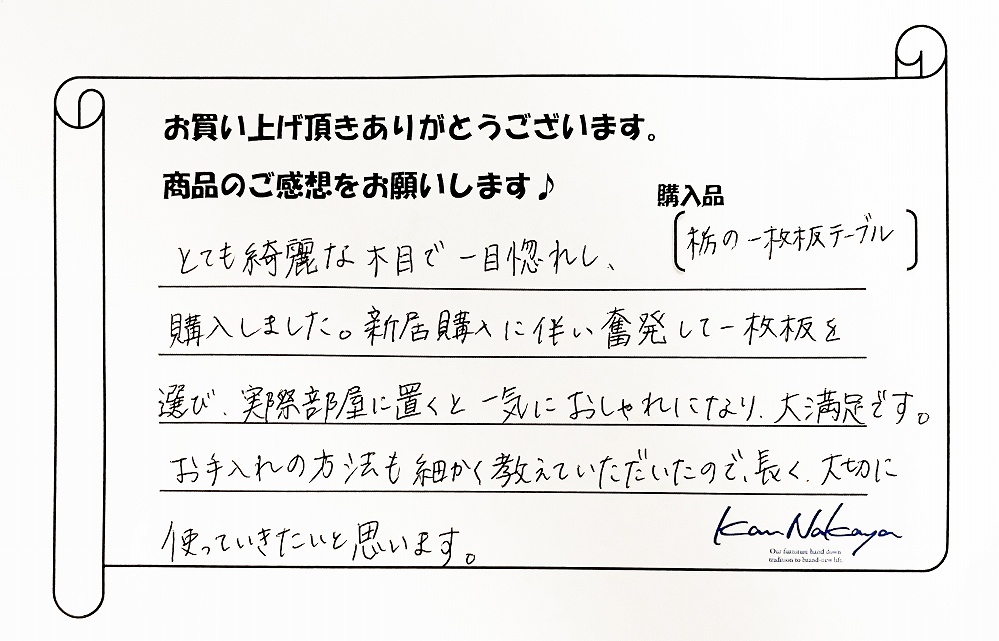 お買い上げ頂きありがとうございます。
商品のご感想をお願いします♪
購入品
栃の一枚板テーブル
とても綺麗な木目で一目惚れし、
購入しました。新居購入に伴い奮発して一枚板を
選び、実際部屋に置くと一気におしゃれになり、大満足です。
お手入れの方法も細かく教えていただいたので、長く、大切に
使っていきたいと思います。
Kan Nakaya
Our furniture hand down
tradition to brand-new life.